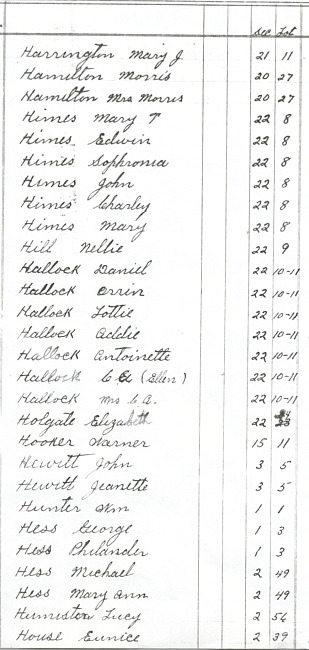 Sec Lot
Harrington Mary J 21 11
Hamilton Morris 20 27
Hamilton Mrs Morris 20 27
Himes Mary T 22 8
Himes Edwin 22 8
Himes Sophronia 22 8
Himes John 22 8
Himes Charley 22 8
Himes Mary 22 8
Hill Nellie 22 9
Hallock Daniel 22 10-11
Hallock Orrin 22 10-11
Hallock Lottie 22 10-11
Hallock Addie 22 10-11
Hallock Antoinette 22 10-11
Hallock C E (Ellen) 22 10-11
Hallock Mrs C A. 22 10-11
Holgate Elizabeth 22
Hooker Warner 15 11
Hewitt John 3 5
Hewitt Jeanette 3 5
Hunter Wm 1 1
Hess George 1 3
Hess Philander 1 3
Hess Michael 2 49
Hess Mary Ann 2 49
Humiston Lucy 2 56
House Eunice 2 39